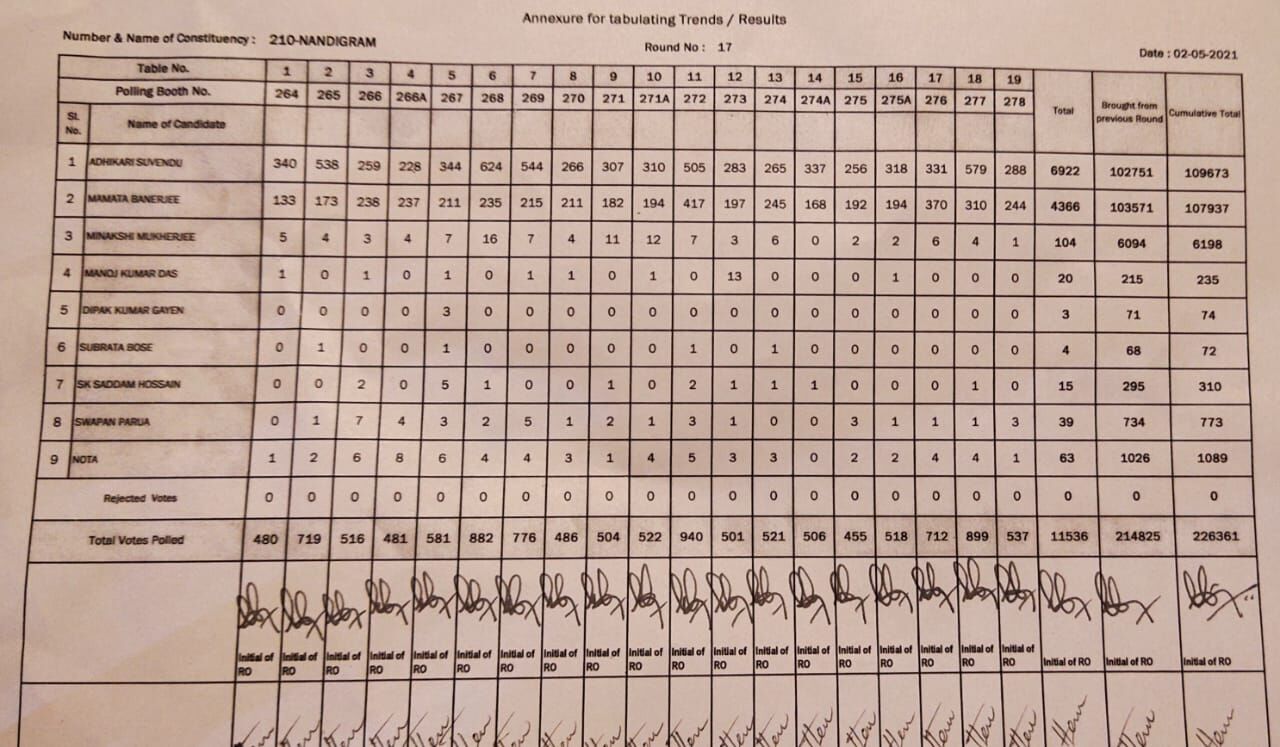 Annexure for tabulating Trends / Results
Number & Name of Constituency : 210-NANDIGRAM Round No : 17 Date : 02-05-2021
Table No. 1 2 3 4 5 6 7 8 9 10 11 12 13 14 15 16 17 18 19 Total Brought from previous Round Cumulative Total
Polling Booth No. 264 265 266 266A 267 268 269 270 271 271A 272 273 274 274A 275 275A 276 277 278
Sl. No. Name of Candidate
1 ADHIKARI SUVENDU 340 538 259 228 344 624 544 266 307 310 505 283 265 337 256 318 331 579 288 6922 102751 109673
2 MAMATA BANERJEE 133 173 238 237 211 235 215 211 182 194 417 197 245 168 192 194 370 310 244 4366 103571 107937
3 MINAKSHI MUKHERJEE 5 4 3 4 7 16 7 4 11 12 7 3 6 0 2 2 6 4 1 104 6094 6198
4 MANOJ KUMAR DAS 1 0 1 0 1 0 1 1 0 1 0 13 0 0 0 1 0 0 0 20 215 235
5 DIPAK KUMAR GAYEN 0 0 0 0 3 0 0 0 0 0 0 0 0 0 0 0 0 0 0 3 71 74
6 SUBRATA BOSE 0 1 0 0 1 0 0 0 0 0 1 0 1 0 0 0 0 0 0 4 68 72
7 SK SADDAM HOSSAIN 0 0 2 0 5 1 0 0 1 0 2 1 1 1 0 0 0 1 0 15 295 310
8 SWAPAN PARUA 0 1 7 4 3 2 5 1 2 1 3 1 0 0 3 1 1 1 3 39 734 773
9 NOTA 1 2 6 8 6 4 4 3 1 4 5 3 3 0 2 2 4 4 1 63 1026 1089
Rejected Votes 0 0 0 0 0 0 0 0 0 0 0 0 0 0 0 0 0 0 0 0 0 0
Total Votes Polled 480 719 516 481 581 882 776 486 504 522 940 501 521 506 455 518 712 899 537 11536 214825 226361
Initial of RO Initial of RO Initial of RO Initial of RO Initial of RO Initial of RO Initial of RO Initial of RO Initial of RO Initial of RO Initial of RO Initial of RO Initial of RO Initial of RO Initial of RO Initial of RO Initial of RO Initial of RO Initial of RO Initial of RO Initial of RO Initial of RO